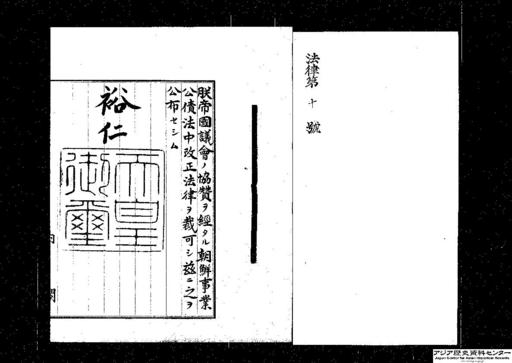 法律第十號
朕帝國議會ノ協贊ヲ經タル朝鮮事業
公債法中改正法律ヲ裁可シ茲ニ之ヲ
公布セシム
裕仁
天皇
御璽
内閣
アジア歴史資料センター
Japan Center for Asian Historical Records